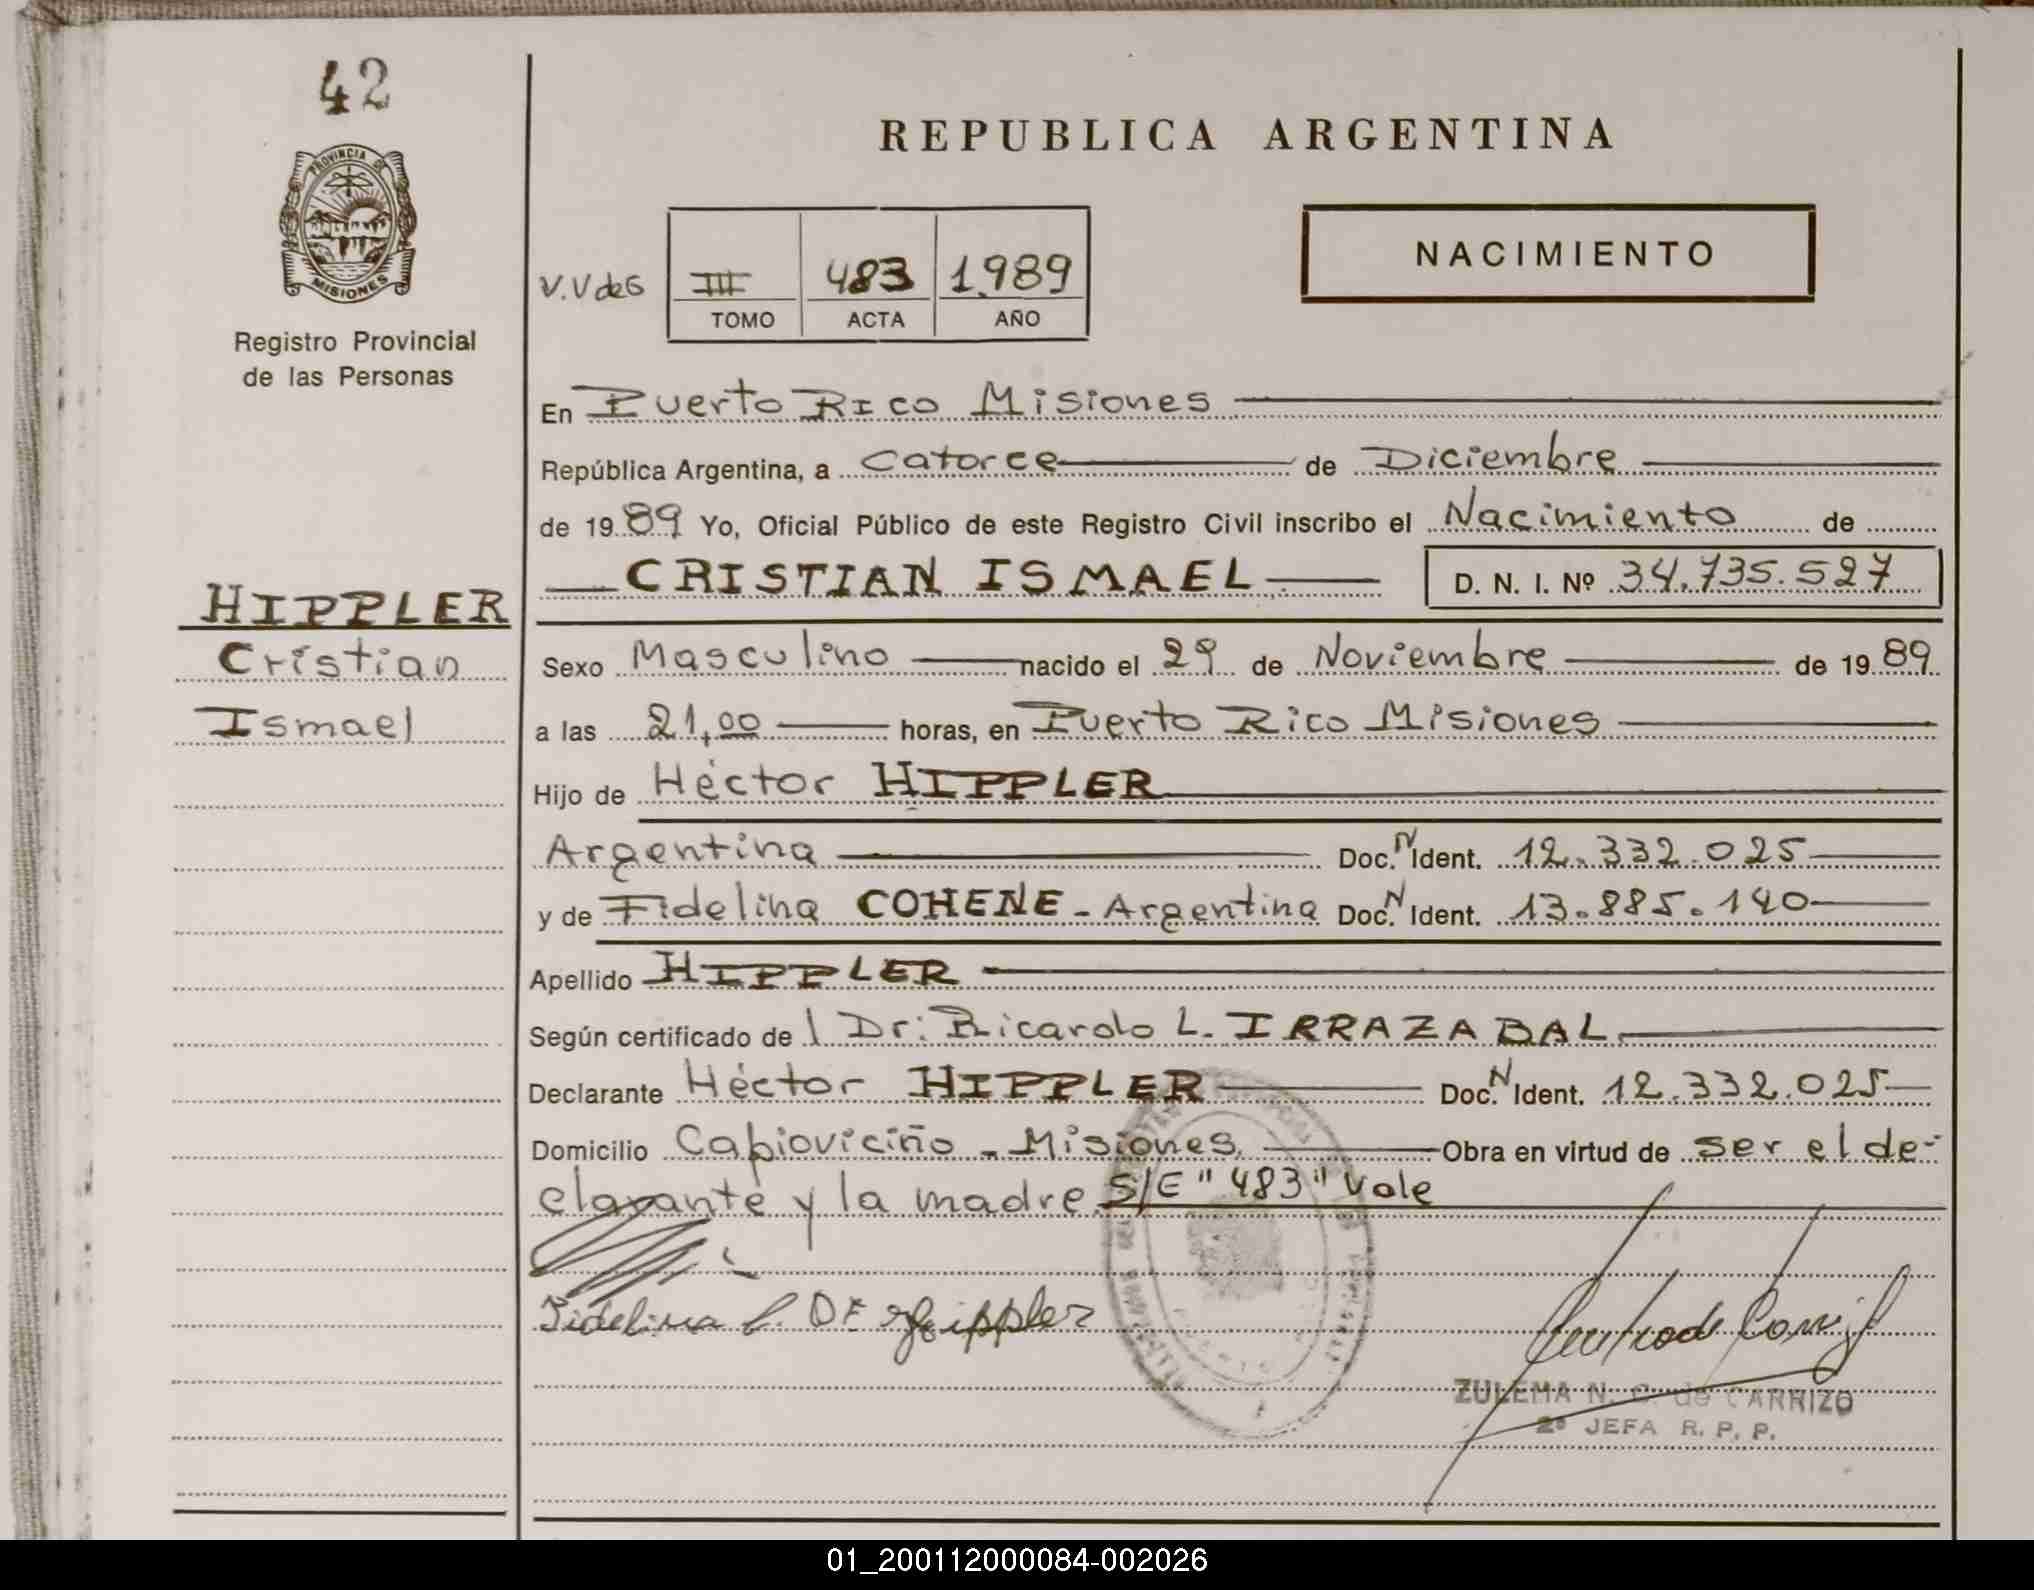 42
REPUBLICA ARGENTINA
PROVINCIA DE
MISIONES
Registro Provincial
de las Personas
V.V de G
III 483 1.989
TOMO ACTA AÑO
NACIMIENTO
En Puerto Rico Misiones
República Argentina, a Catorce de Diciembre
de 19 89 Yo, Oficial Público de este Registro Civil inscribo el Nacimiento de
CRISTIAN ISMAEL D. N. I. Nº 34.735.527
HIPPLER
Cristian
Ismael
Sexo Masculino nacido el 29 de Noviembre de 19 89
a las 21,00 horas, en Puerto Rico Misiones
Hijo de Héctor HIPPLER
Argentina Doc. N Ident. 12.332.025
y de Fidelina COHENE - Argentina Doc. N Ident. 13.885.140
Apellido HIPPLER
Según certificado de l Dr: Ricardo L. IRRAZABAL
Declarante Héctor HIPPLER Doc. N Ident. 12.332.025
Domicilio Capioviciño - Misiones. Obra en virtud de ser el de-
clarante y la madre. S/E "483" Vale
Fidelina C. DE Hippler
ZULEMA N. C. de CARRIZO
2ª JEFA R. P. P.
01_200112000084-002026